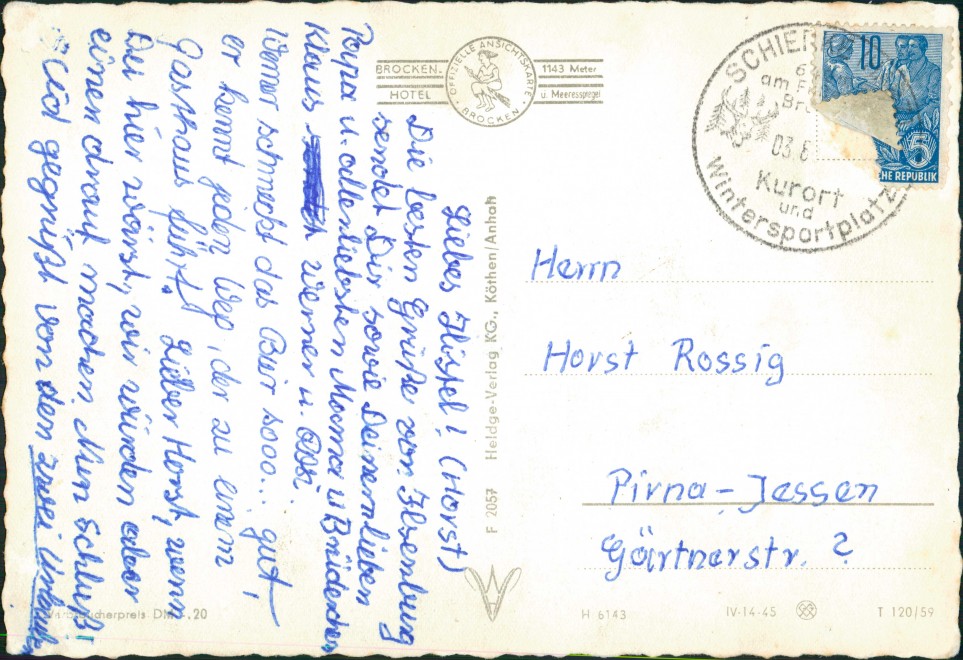 BROCKEN-
HOTEL
OFFIZIELLE ANSICHTSKARTE
BROCKEN
1143 Meter
ü. Meeresspiegel
SCHIER
am
03.6
Kurort
und
Wintersportplatz
10
5
HE REPUBLIK
Liebes Höstel! (Horst)
Die besten Grüße von Ilsenburg
sendet Dir sowie Deinem lieben
Papa u. allerliebsten Mama u. Brüderchen
Klaus Werner u. Ossi.
Werner schmeckt das Bier sooo... gut,
er kennt jeden Weg, der zu einem
Gasthaus führt. Lieber Horst, wenn
Du hier wärst, wir würden aber
einen drauf machen. Nun Schluß!
Seid gegrüßt von den zwei Urlaubern
Herrn
Horst Rossig
Pirna-Jessen
Gärtnerstr. ?
F 2057 Heldge-Verlag KG., Köthen/Anhalt
Verbraucherpreis DM -,20
H 6143
IV-14-45
T 120/59